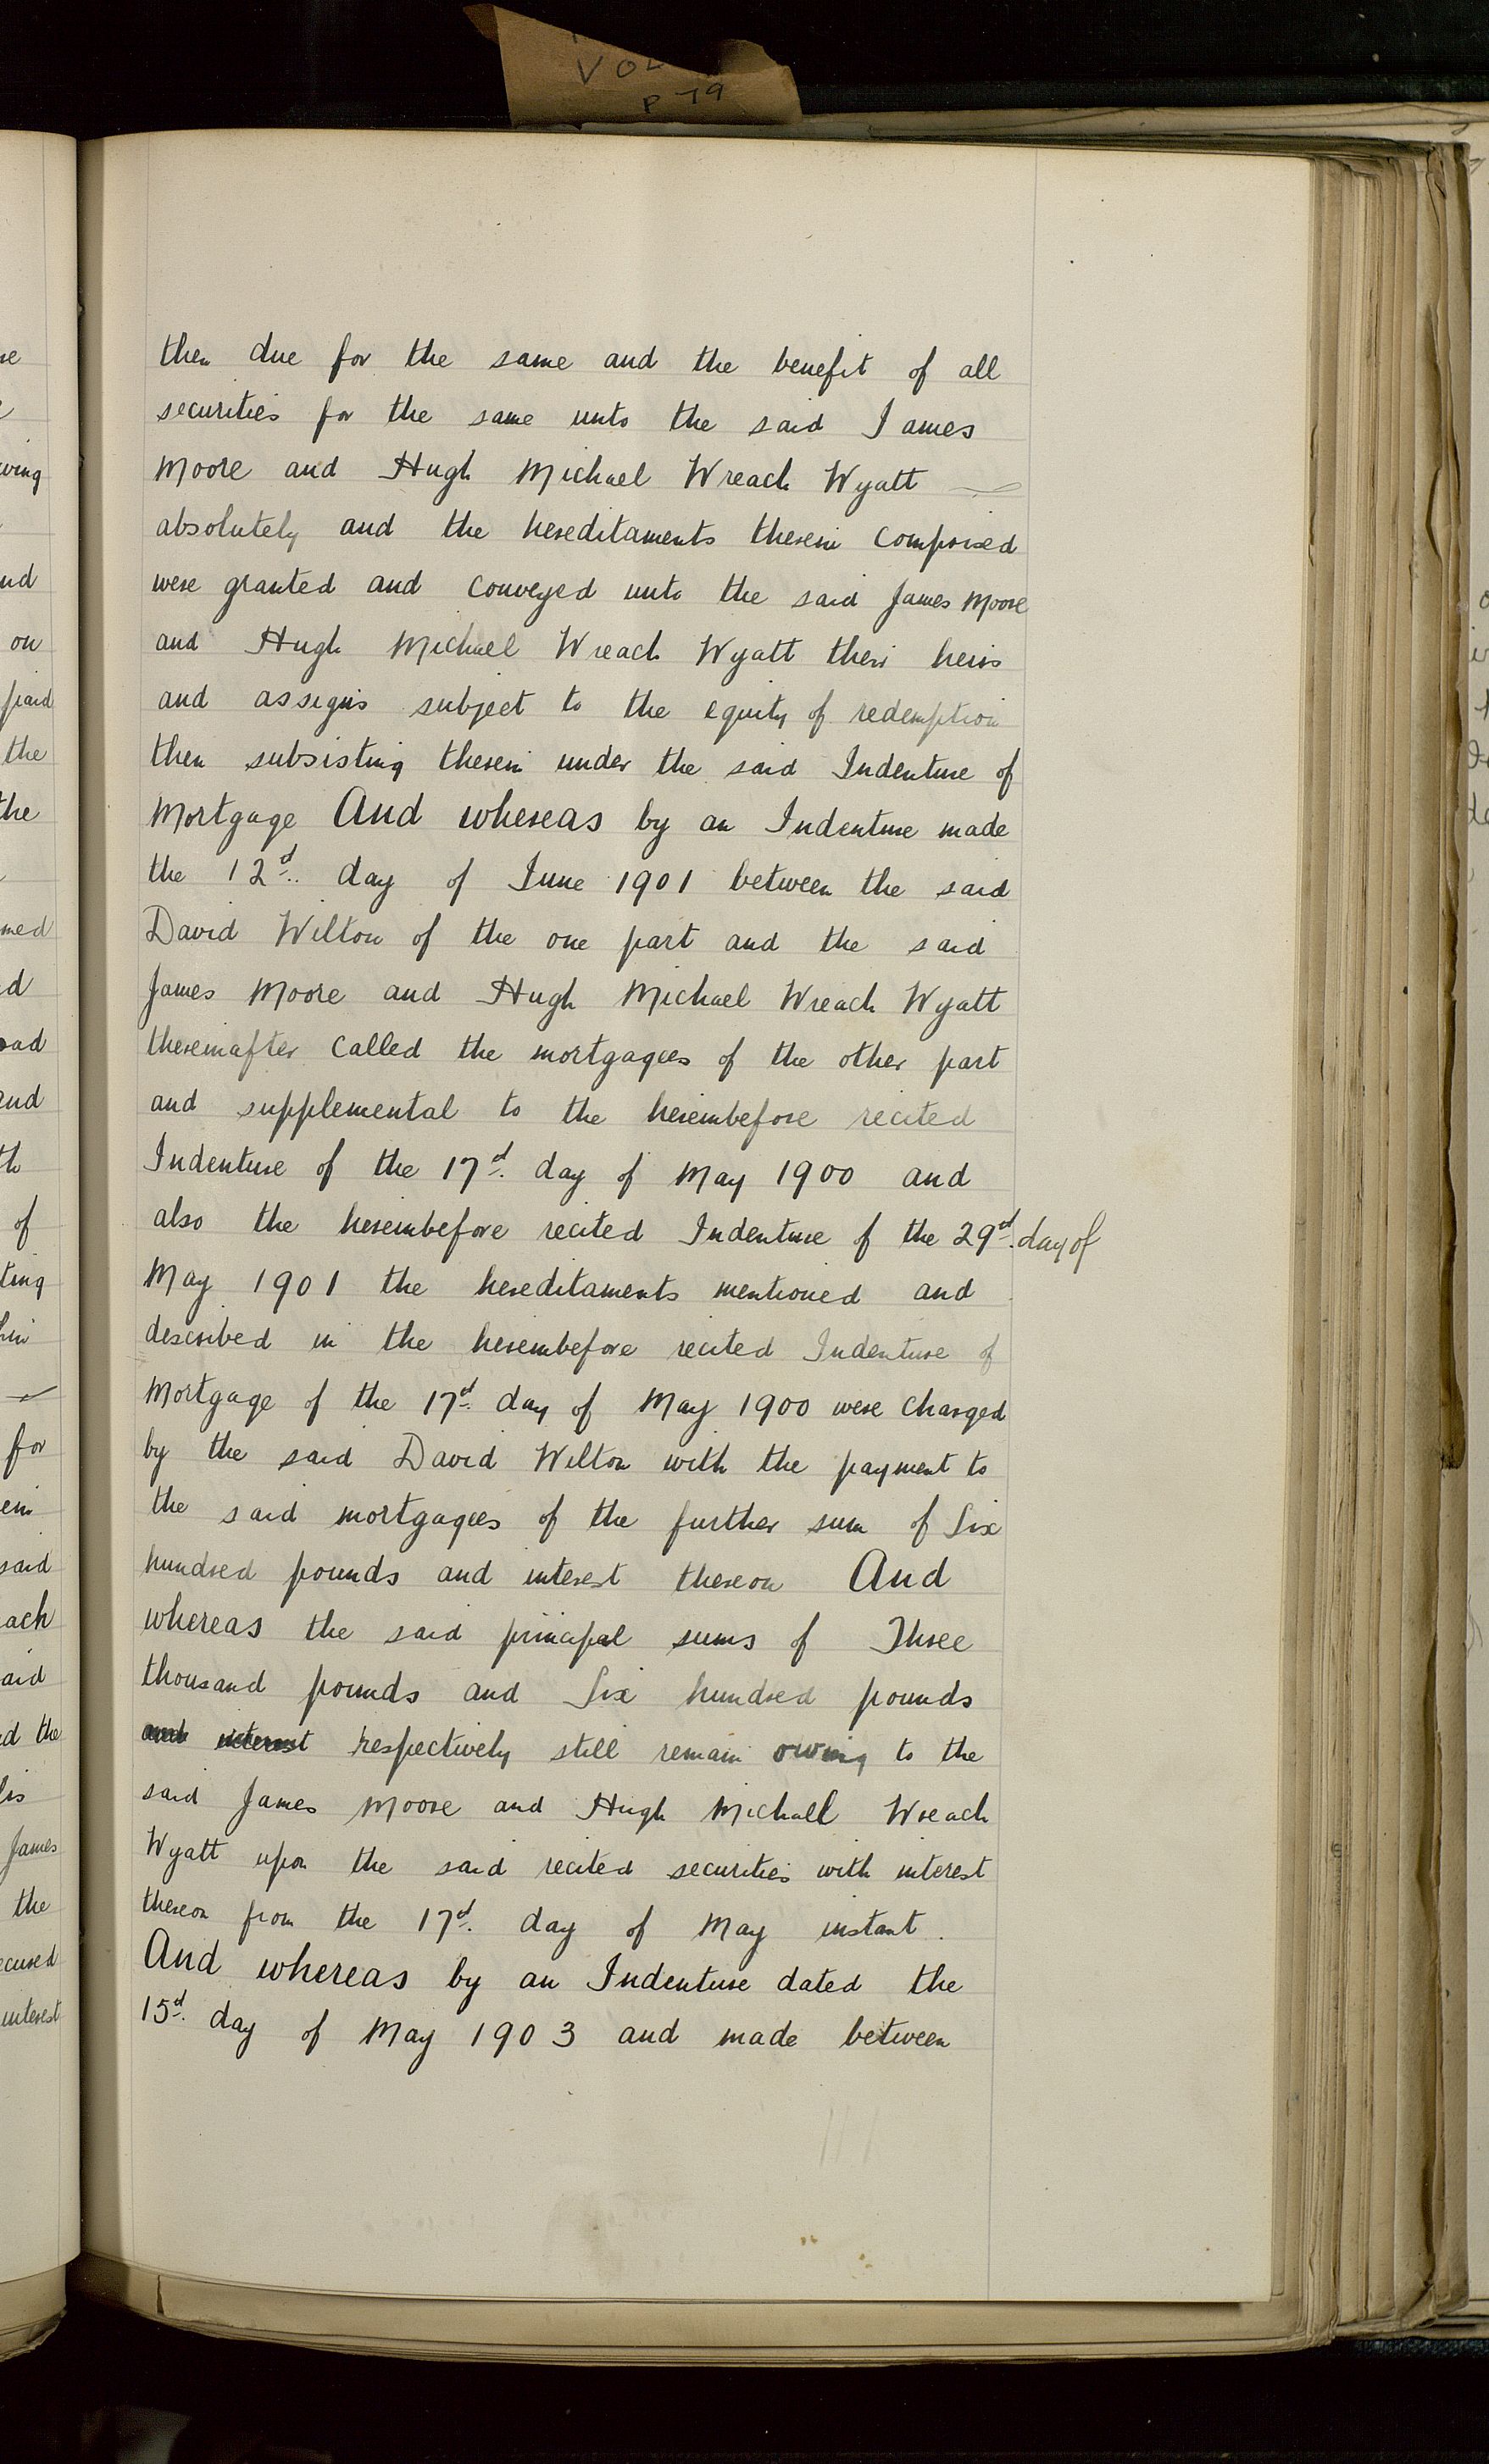 VOL
P 79
then due for the same and the benefit of all
securities for the same unto the said James
Moore and Hugh Michael Wreach Wyatt
absolutely and the hereditaments therein comprised
were granted and conveyed unto the said James Moore
and Hugh Michael Wreach Wyatt their heirs
and assigns subject to the equity of redemption
then subsisting therein under the said Indenture of
Mortgage And whereas by an Indenture made
the 12d. day of June 1901 between the said
David Wilton of the one part and the said
James Moore and Hugh Michael Wreach Wyatt
thereinafter called the mortgagees of the other part
and supplemental to the hereinbefore recited
Indenture of the 17d. day of May 1900 and
also the hereinbefore recited Indenture of the 29d. day of
May 1901 the hereditaments mentioned and
described in the hereinbefore recited Indenture of
Mortgage of the 17d. day of May 1900 were charged
by the said David Wilton with the payment to
the said mortgagees of the further sum of Six
hundred pounds and interest thereon And
whereas the said principal sums of Three
thousand pounds and Six hundred pounds
and interest respectively still remain owing to the
said James Moore and Hugh Michall Wreach
Wyatt upon the said recited securities with interest
thereon from the 17d. day of May instant.
And whereas by an Indenture dated the
15d. day of May 1903 and made between